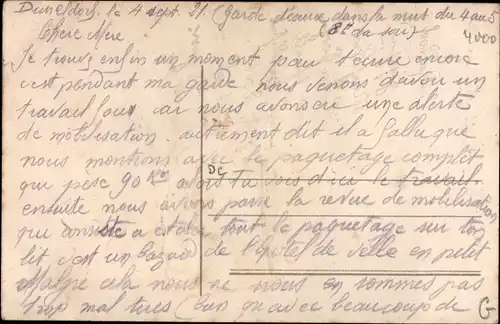 Dusseldorf. le 4 sept. 21. (Garde d'écurie dans la nuit du 4 au 5
Chère Mère (8h du soir)
4000
Je trouve enfin un moment pour t'écrire encore
c'est pendant ma garde nous venons d'avoir un
travail fou car nous avons eu une alerte
de mobilisation. autrement dit il a fallu que
nous montions avec le paquetage complet
qui pèse 90 Kos alors Tu vois d'ici le travail
ensuite nous avons passé la revue de mobilisation
qui consiste a etaler tout le paquetage sur ton
lit c'est un bazard de l'hotel de ville en petit
Malgre cela nous ne nous en sommes pas
trop mal tirés (bien qu'avec beaucoup de
G